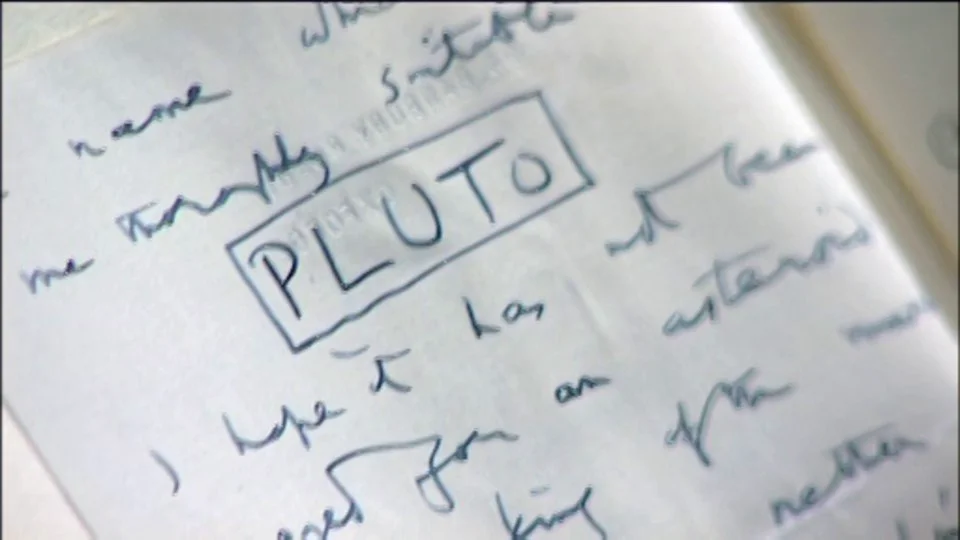 name
me thoroughly suitable
PLUTO
I hope it has not been
used for an asteroid
king of the
nether